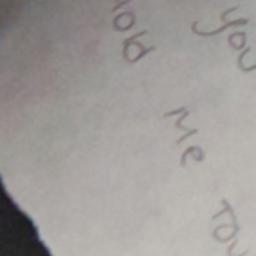 you
old Me